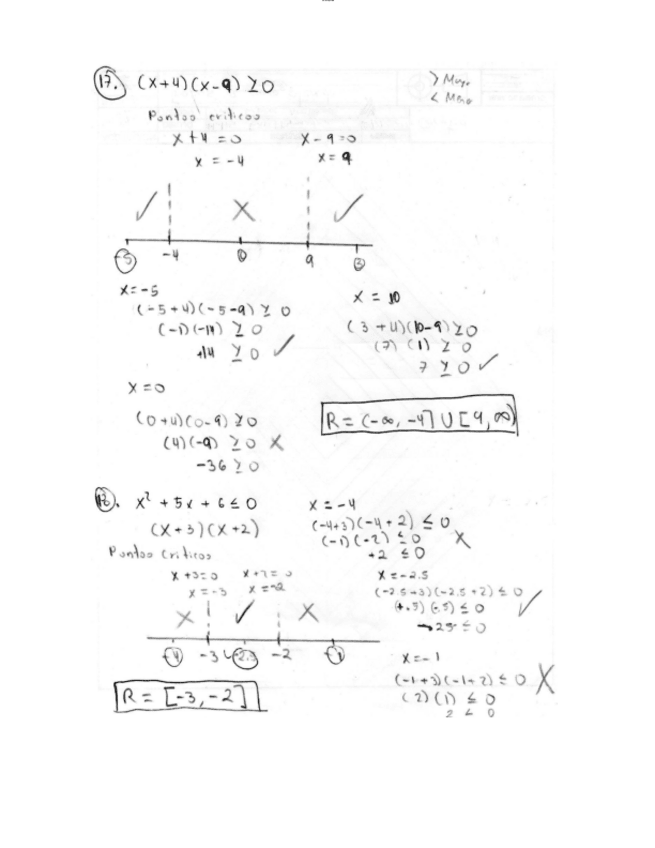 17. (x+4)(x-9) ≥ 0
> Mayo
< Meno
Puntos criticos
x+4=0 x-9=0
x = -4 x = 9
✓ X ✓
-5 -4 0 9
x=-5
(-5+4)(-5-9) ≥ 0
(-1)(-14) ≥ 0
+14 ≥ 0 ✓
x = 10
(3+4)(10-9) ≥ 0
(7) (1) ≥ 0
7 ≥ 0 ✓
x=0
(0+4)(0-9) ≥ 0
(4)(-9) ≥ 0 X
-36 ≥ 0
R = (-∞, -4] U [9, ∞)
18. x² + 5x + 6 ≤ 0
(x+3)(x+2)
Puntos Criticos
x+3=0 x+2=0
x=-3 x=-2
X ✓ X
-4 -3 -2.5 -2 -1
R = [-3, -2]
x = -4
(-4+3)(-4+2) ≤ 0
(-1)(-2) ≤ 0 X
+2 ≤ 0
x=-2.5
(-2.5+3)(-2.5+2) ≤ 0
(+.5)(-.5) ≤ 0 ✓
-.25 ≤ 0
x=-1
(-1+3)(-1+2) ≤ 0 X
(2)(1) ≤ 0
2 ≤ 0